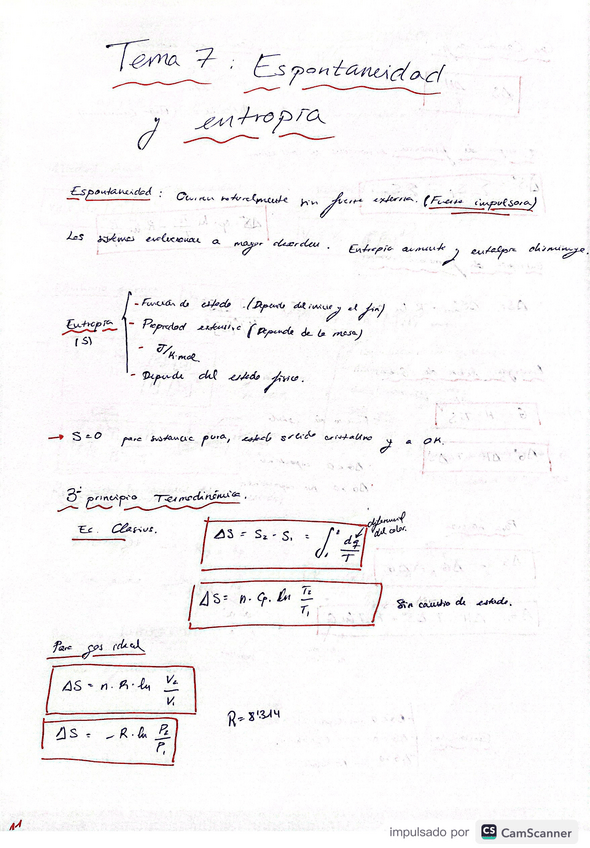 Tema 7: Espontaneidad
y entropía
Espontaneidad: Ocurren naturalmente sin fuerza externa. (Fuerza impulsora)
Los sistemas evolucionan a mayor desorden. Entropía aumenta y entalpía disminuye.
Entropía
(S)
- Función de estado. (Depende del inicio y el fin)
- Propiedad extensiva (Depende de la masa)
- J/K·mol
- Depende del estado físico.
→ S=0 para sustancia pura, estado sólido cristalino y a 0K.
3er principio Termodinámica.
Ec. Clasius.
ΔS = S2 - S1 = ∫₁² dq/T
diferencial del calor.
ΔS = n. Cp. ln T2/T1
Sin cambio de estado.
Para gas ideal
ΔS = n. R. ln V2/V1
ΔS = -R. ln P2/P1
R = 8'314
11
impulsado por CS CamScanner